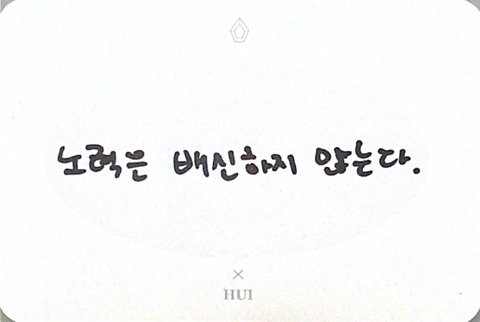 노력은 배신하지 않는다.
×
HUI